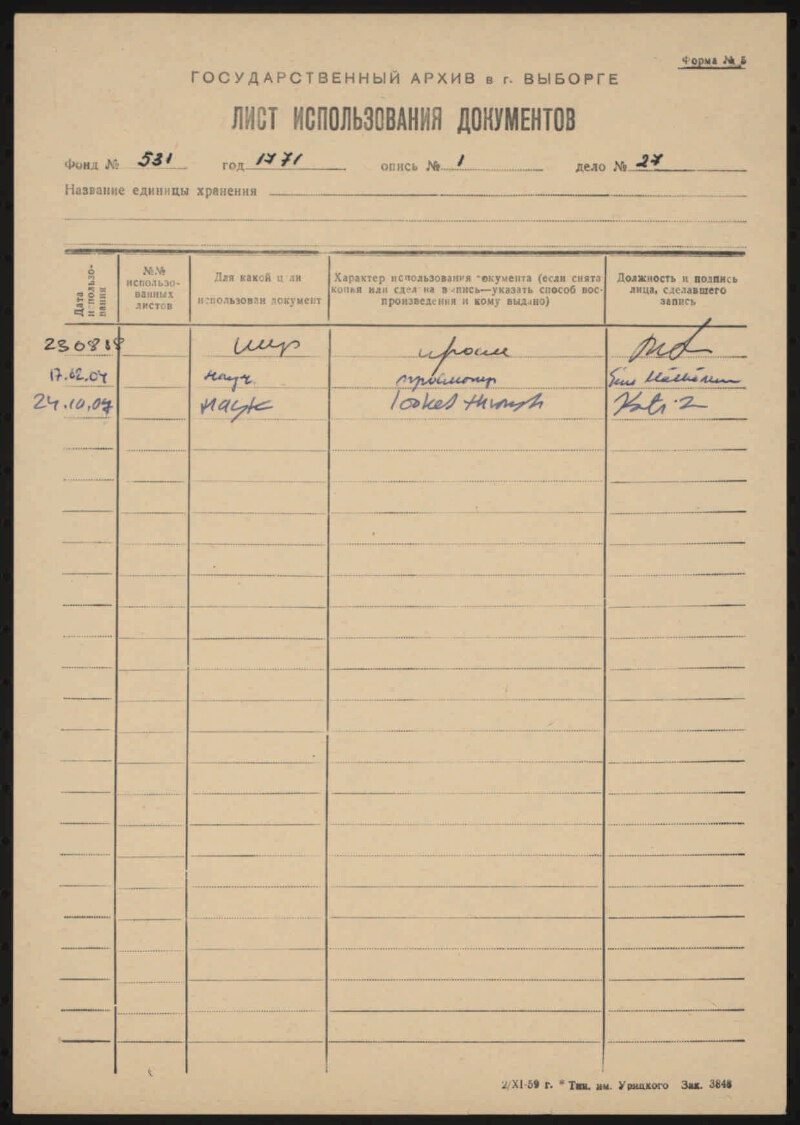 Форма № 5
ГОСУДАРСТВЕННЫЙ АРХИВ в г. ВЫБОРГЕ
ЛИСТ ИСПОЛЬЗОВАНИЯ ДОКУМЕНТОВ
Фонд № 531 год 1771 опись № 1 дело № 27
Название единицы хранения
Дата использования
№№ использованных листов
Для какой цели использован документ
Характер использования документа (если снята копия или сделана выпись—указать способ воспроизведения и кому выдано)
Должность и подпись лица, сделавшего запись
17.02.04 науч. просмотр
24.10.07 наук looked through
2/XI-59 г. * Тип. им. Урицкого Зак. 3848